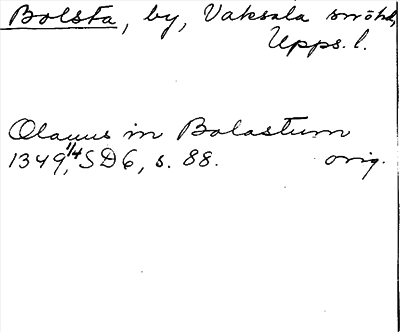 Bolsta, by, Vaksala snöhd,
Upps. l.
Olauus in Bolastum
1349, 1/4 SD6, s. 88. orig.